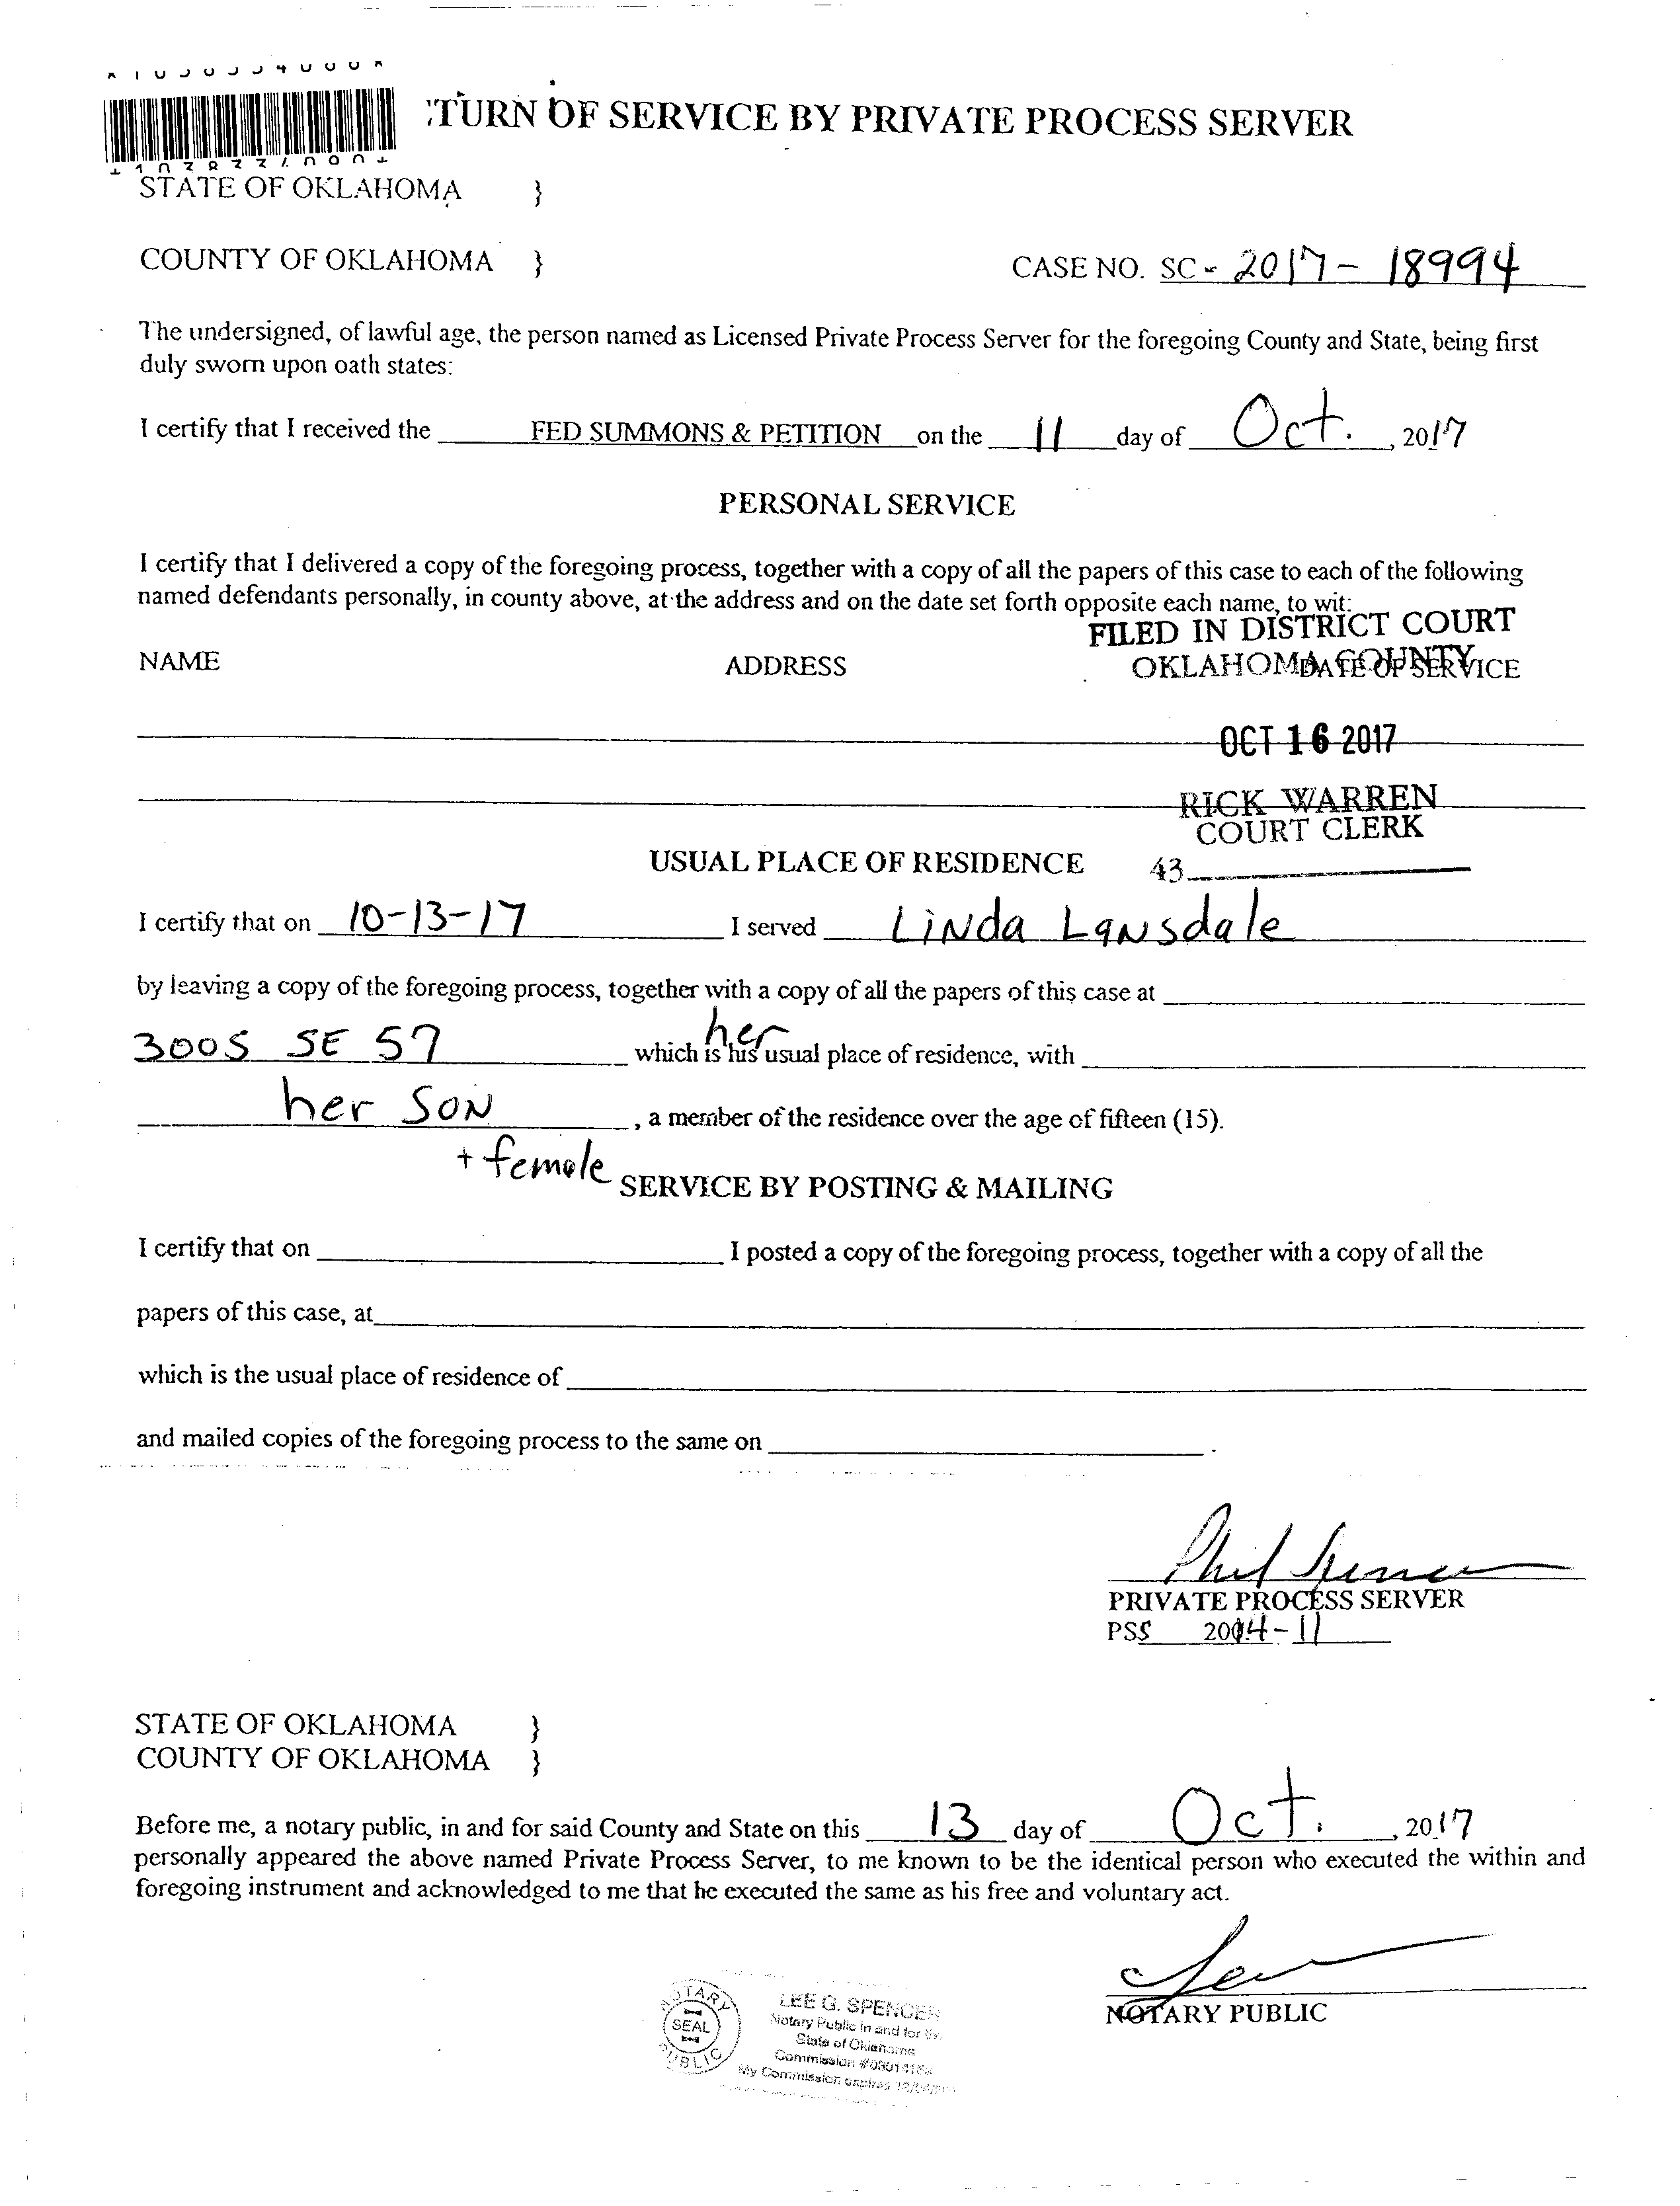 :TURN OF SERVICE BY PRIVATE PROCESS SERVER
STATE OF OKLAHOMA }
COUNTY OF OKLAHOMA }
CASE NO. SC - 2017 - 18994
The undersigned, of lawful age, the person named as Licensed Private Process Server for the foregoing County and State, being first
duly sworn upon oath states:
I certify that I received the FED SUMMONS & PETITION on the 11 day of Oct. , 2017
PERSONAL SERVICE
I certify that I delivered a copy of the foregoing process, together with a copy of all the papers of this case to each of the following
named defendants personally, in county above, at the address and on the date set forth opposite each name, to wit:
FILED IN DISTRICT COURT
OKLAHOMA COUNTY
NAME ADDRESS DATE OF SERVICE
OCT 16 2017
RICK WARREN
COURT CLERK
43
USUAL PLACE OF RESIDENCE
I certify that on 10-13-17 I served Linda Lansdale
by leaving a copy of the foregoing process, together with a copy of all the papers of this case at
3005 SE 57 which is his her usual place of residence, with
her SON , a member of the residence over the age of fifteen (15).
+ female
SERVICE BY POSTING & MAILING
I certify that on I posted a copy of the foregoing process, together with a copy of all the
papers of this case, at
which is the usual place of residence of
and mailed copies of the foregoing process to the same on .
Phil Spencer
PRIVATE PROCESS SERVER
PSS 2014-11
STATE OF OKLAHOMA }
COUNTY OF OKLAHOMA }
Before me, a notary public, in and for said County and State on this 13 day of Oct. , 2017
personally appeared the above named Private Process Server, to me known to be the identical person who executed the within and
foregoing instrument and acknowledged to me that he executed the same as his free and voluntary act.
NOTARY PUBLIC
NOTARY
SEAL
PUBLIC
LEE G. SPENCER
Notary Public in and for the
State of Oklahoma
Commission
My Commission expires